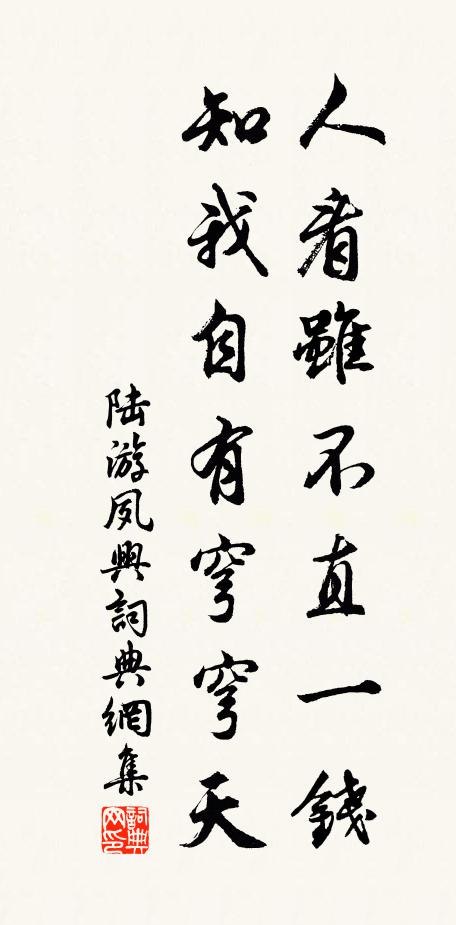 人看雖不直一錢
知我自有穹穹天
陆游夙興詞典網集
詞典网印